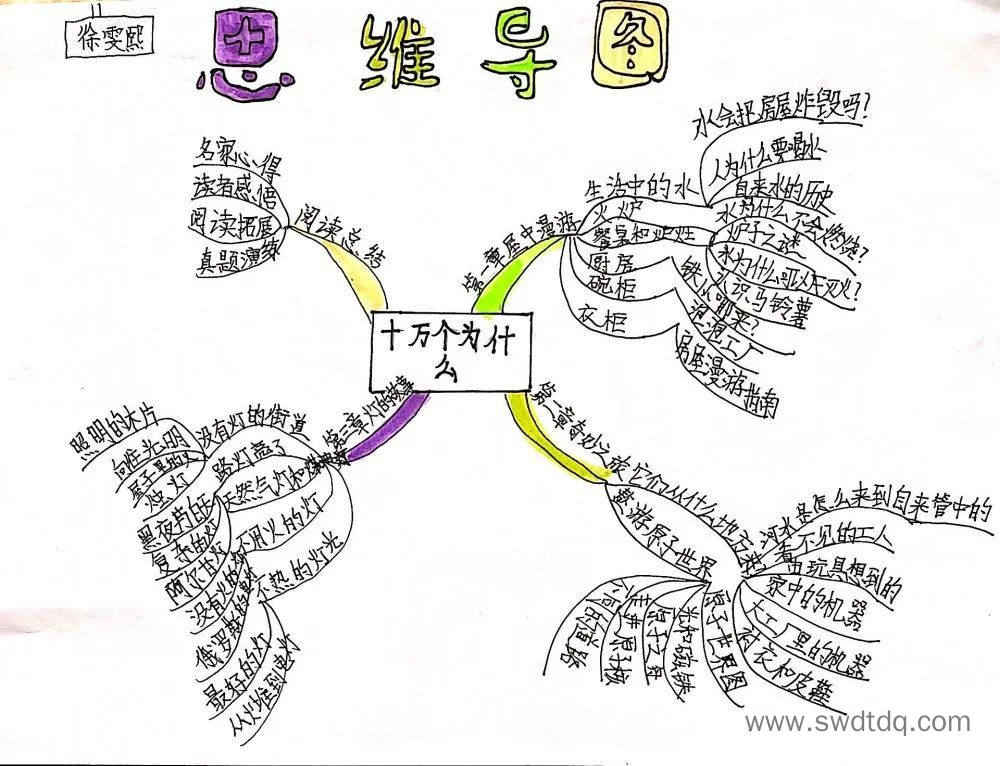 徐雯熙
思维导图
十万个为什么
阅读总结
名家心得
读者感悟
阅读拓展
真题演练
第一章屋中漫游
生活中的水
火炉
餐桌和炉灶
厨房
碗柜
衣柜
水会把房屋炸毁吗?
人为什么要喝水
自来水的历史
水为什么不会燃烧?
炉子之谜
水为什么可以灭火?
识马铃薯
铁从哪来?
泡泡工厂
房屋漫游指南
灯的故事
没有灯的街道
路灯亮了
天然气灯和煤
不用火的灯
不热的灯光
照明的木片
烛灯
黑夜
复杂的灯
阿尔
没有火的
俄罗
最好的灯
从火堆到电灯
奇妙之旅
它们从什么地方来
漫游原子世界
河水是怎么来到自来管中的
看不见的工人
由玩具想到的
家中的机器
大工厂里的机器
衣和皮鞋
原子世界图
光和磁铁
走进原子核
www.swdtdq.com